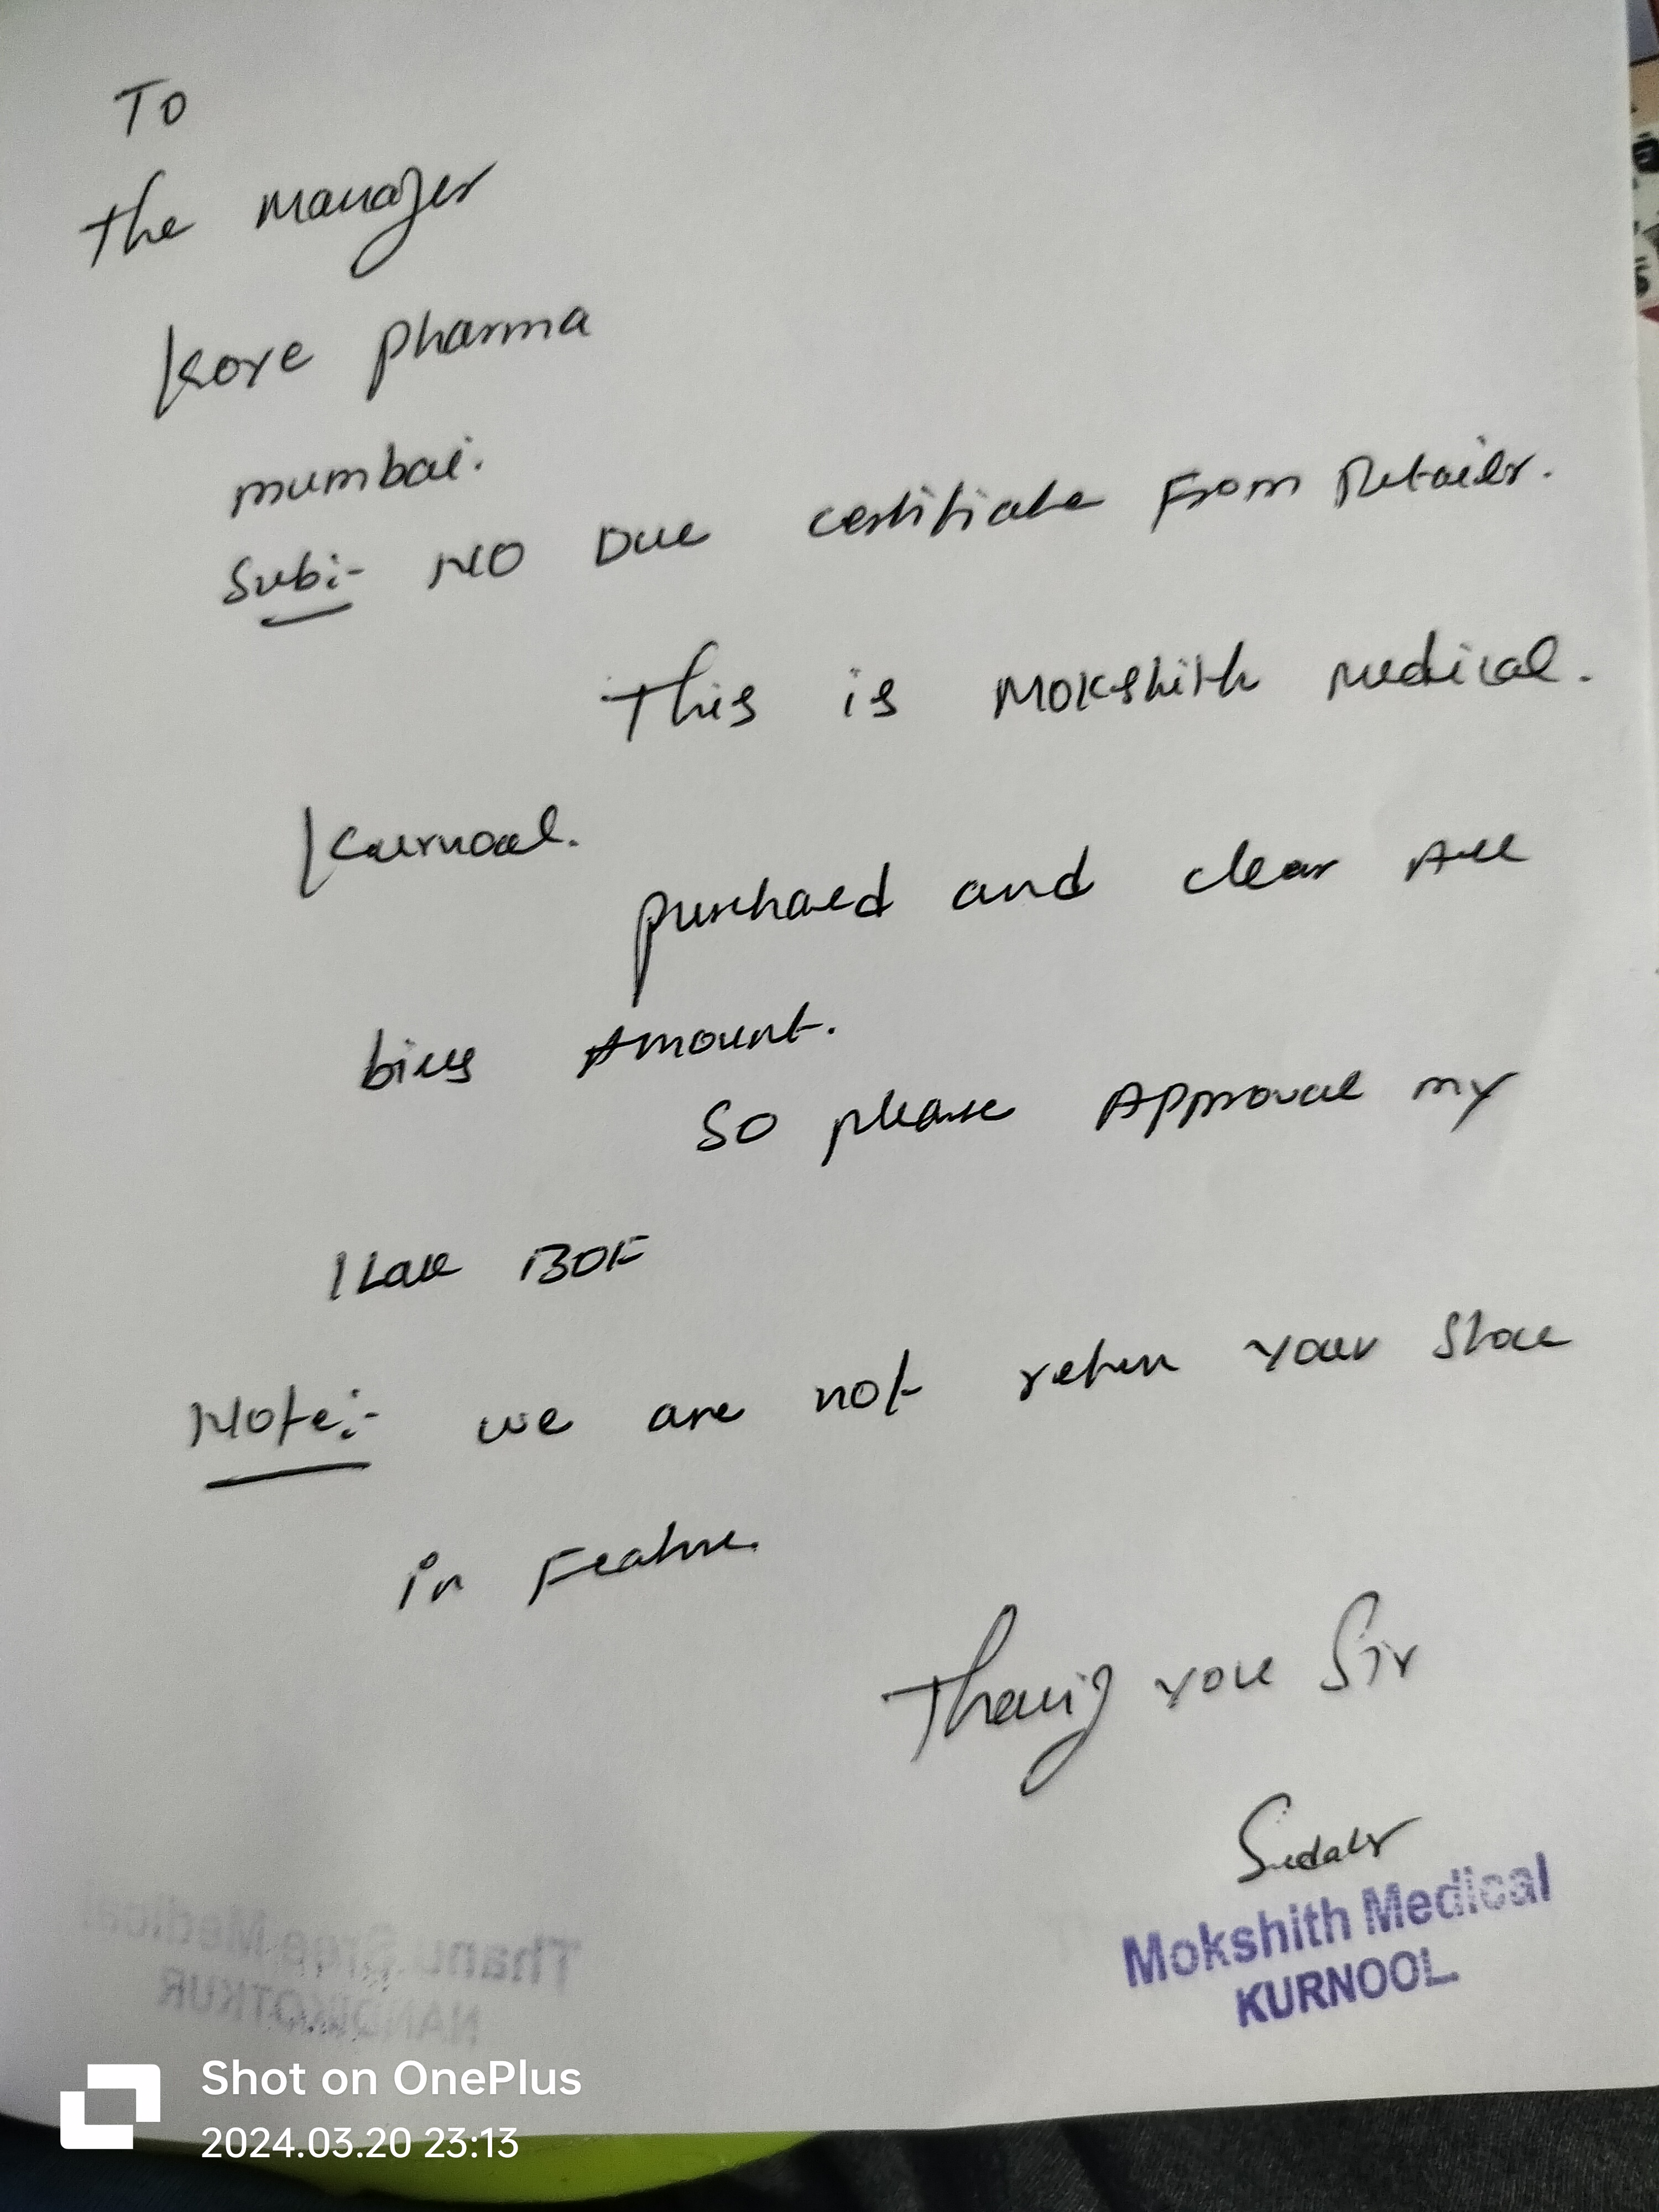 To
the manager
Kore pharma
mumbai.
Sub:- NO Due certificate From Retailer.
This is Mokshith medical.
Kurnool.
purchaed and clear All
bills Amount.
So please Approval my
Note:- we are not return your Stoce
in Feature.
Thanq you Sir
Mokshith Medical
KURNOOL
Thanu Sree Medical
NANDIKOTKUR
Shot on OnePlus
2024.03.20 23:13